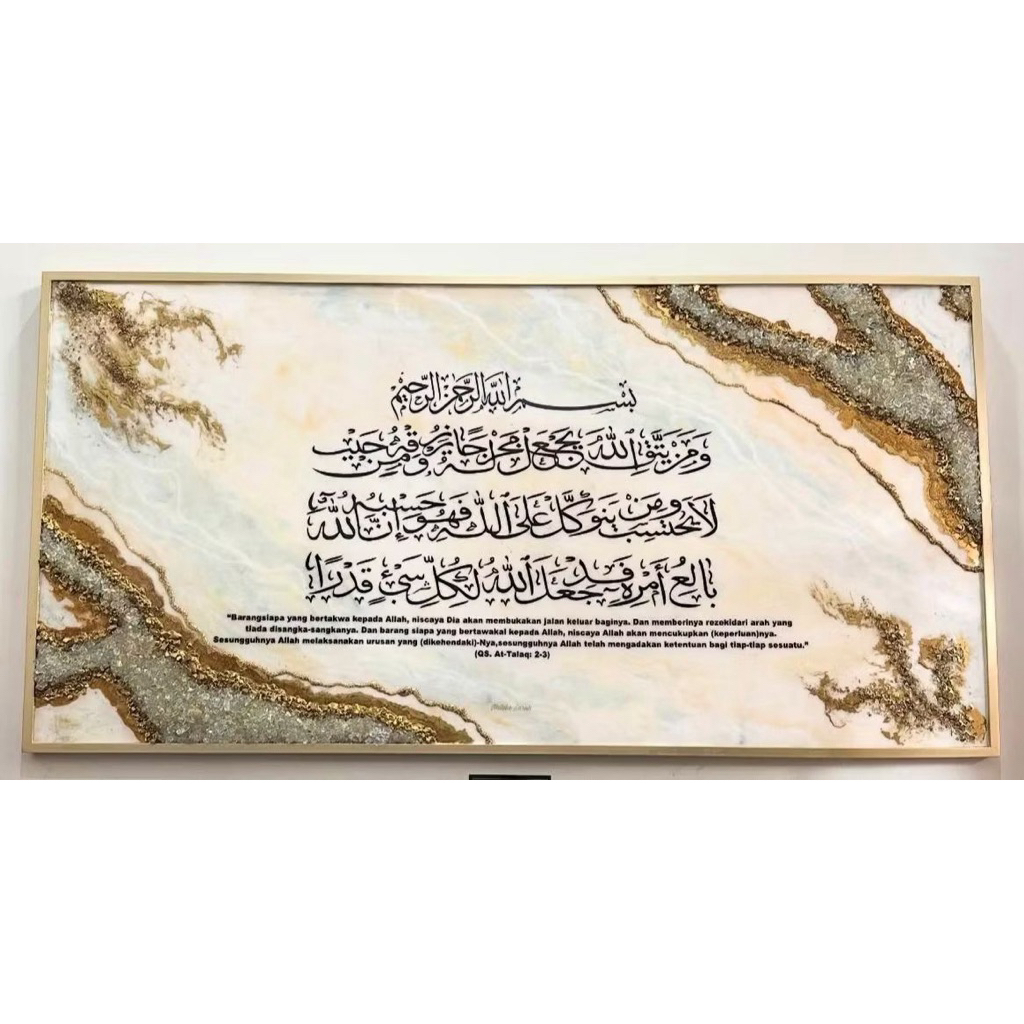 بسم الله الرحمن الرحيم
وَمَن يَتَّقِ اللهَ يَجْعَل مَخْرَجًا وَيَرْزُقْهُ مِنْ حَيْثُ
لَا يَحْتَسِبُ وَمَن يَتَوَكَّلْ عَلَى اللهِ فَهُوَ حَسْبُهُ إِنَّ اللهَ
بَالِغُ أَمْرِهِ قَدْ جَعَلَ اللهُ لِكُلِّ شَيْءٍ قَدْرًا
"Barangsiapa yang bertakwa kepada Allah, niscaya Dia akan membukakan jalan keluar baginya. Dan memberinya rezekidari arah yang
tiada disangka-sangkanya. Dan barang siapa yang bertawakal kepada Allah, niscaya Allah akan mencukupkan (keperluan)nya.
Sesungguhnya Allah melaksanakan urusan yang (dikehendaki)-Nya,sesungguhnya Allah telah mengadakan ketentuan bagi tiap-tiap sesuatu."
(QS. At-Talaq: 2-3)